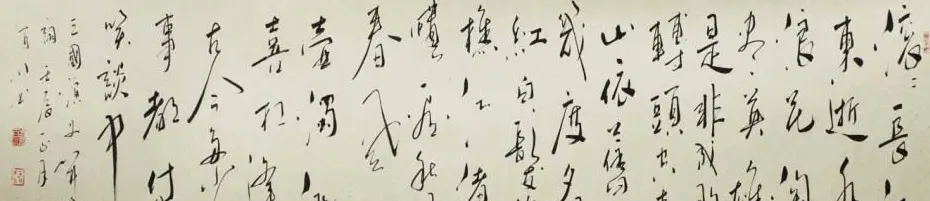 滚〻長
東逝水
浪花淘
盡英雄
是非成敗
轉頭空
山依舊
幾度夕
紅白髮
樵江渚
慣看秋
春風一
壺濁
喜相逢
古今多少
事都付
笑談中
三國演义開
正月